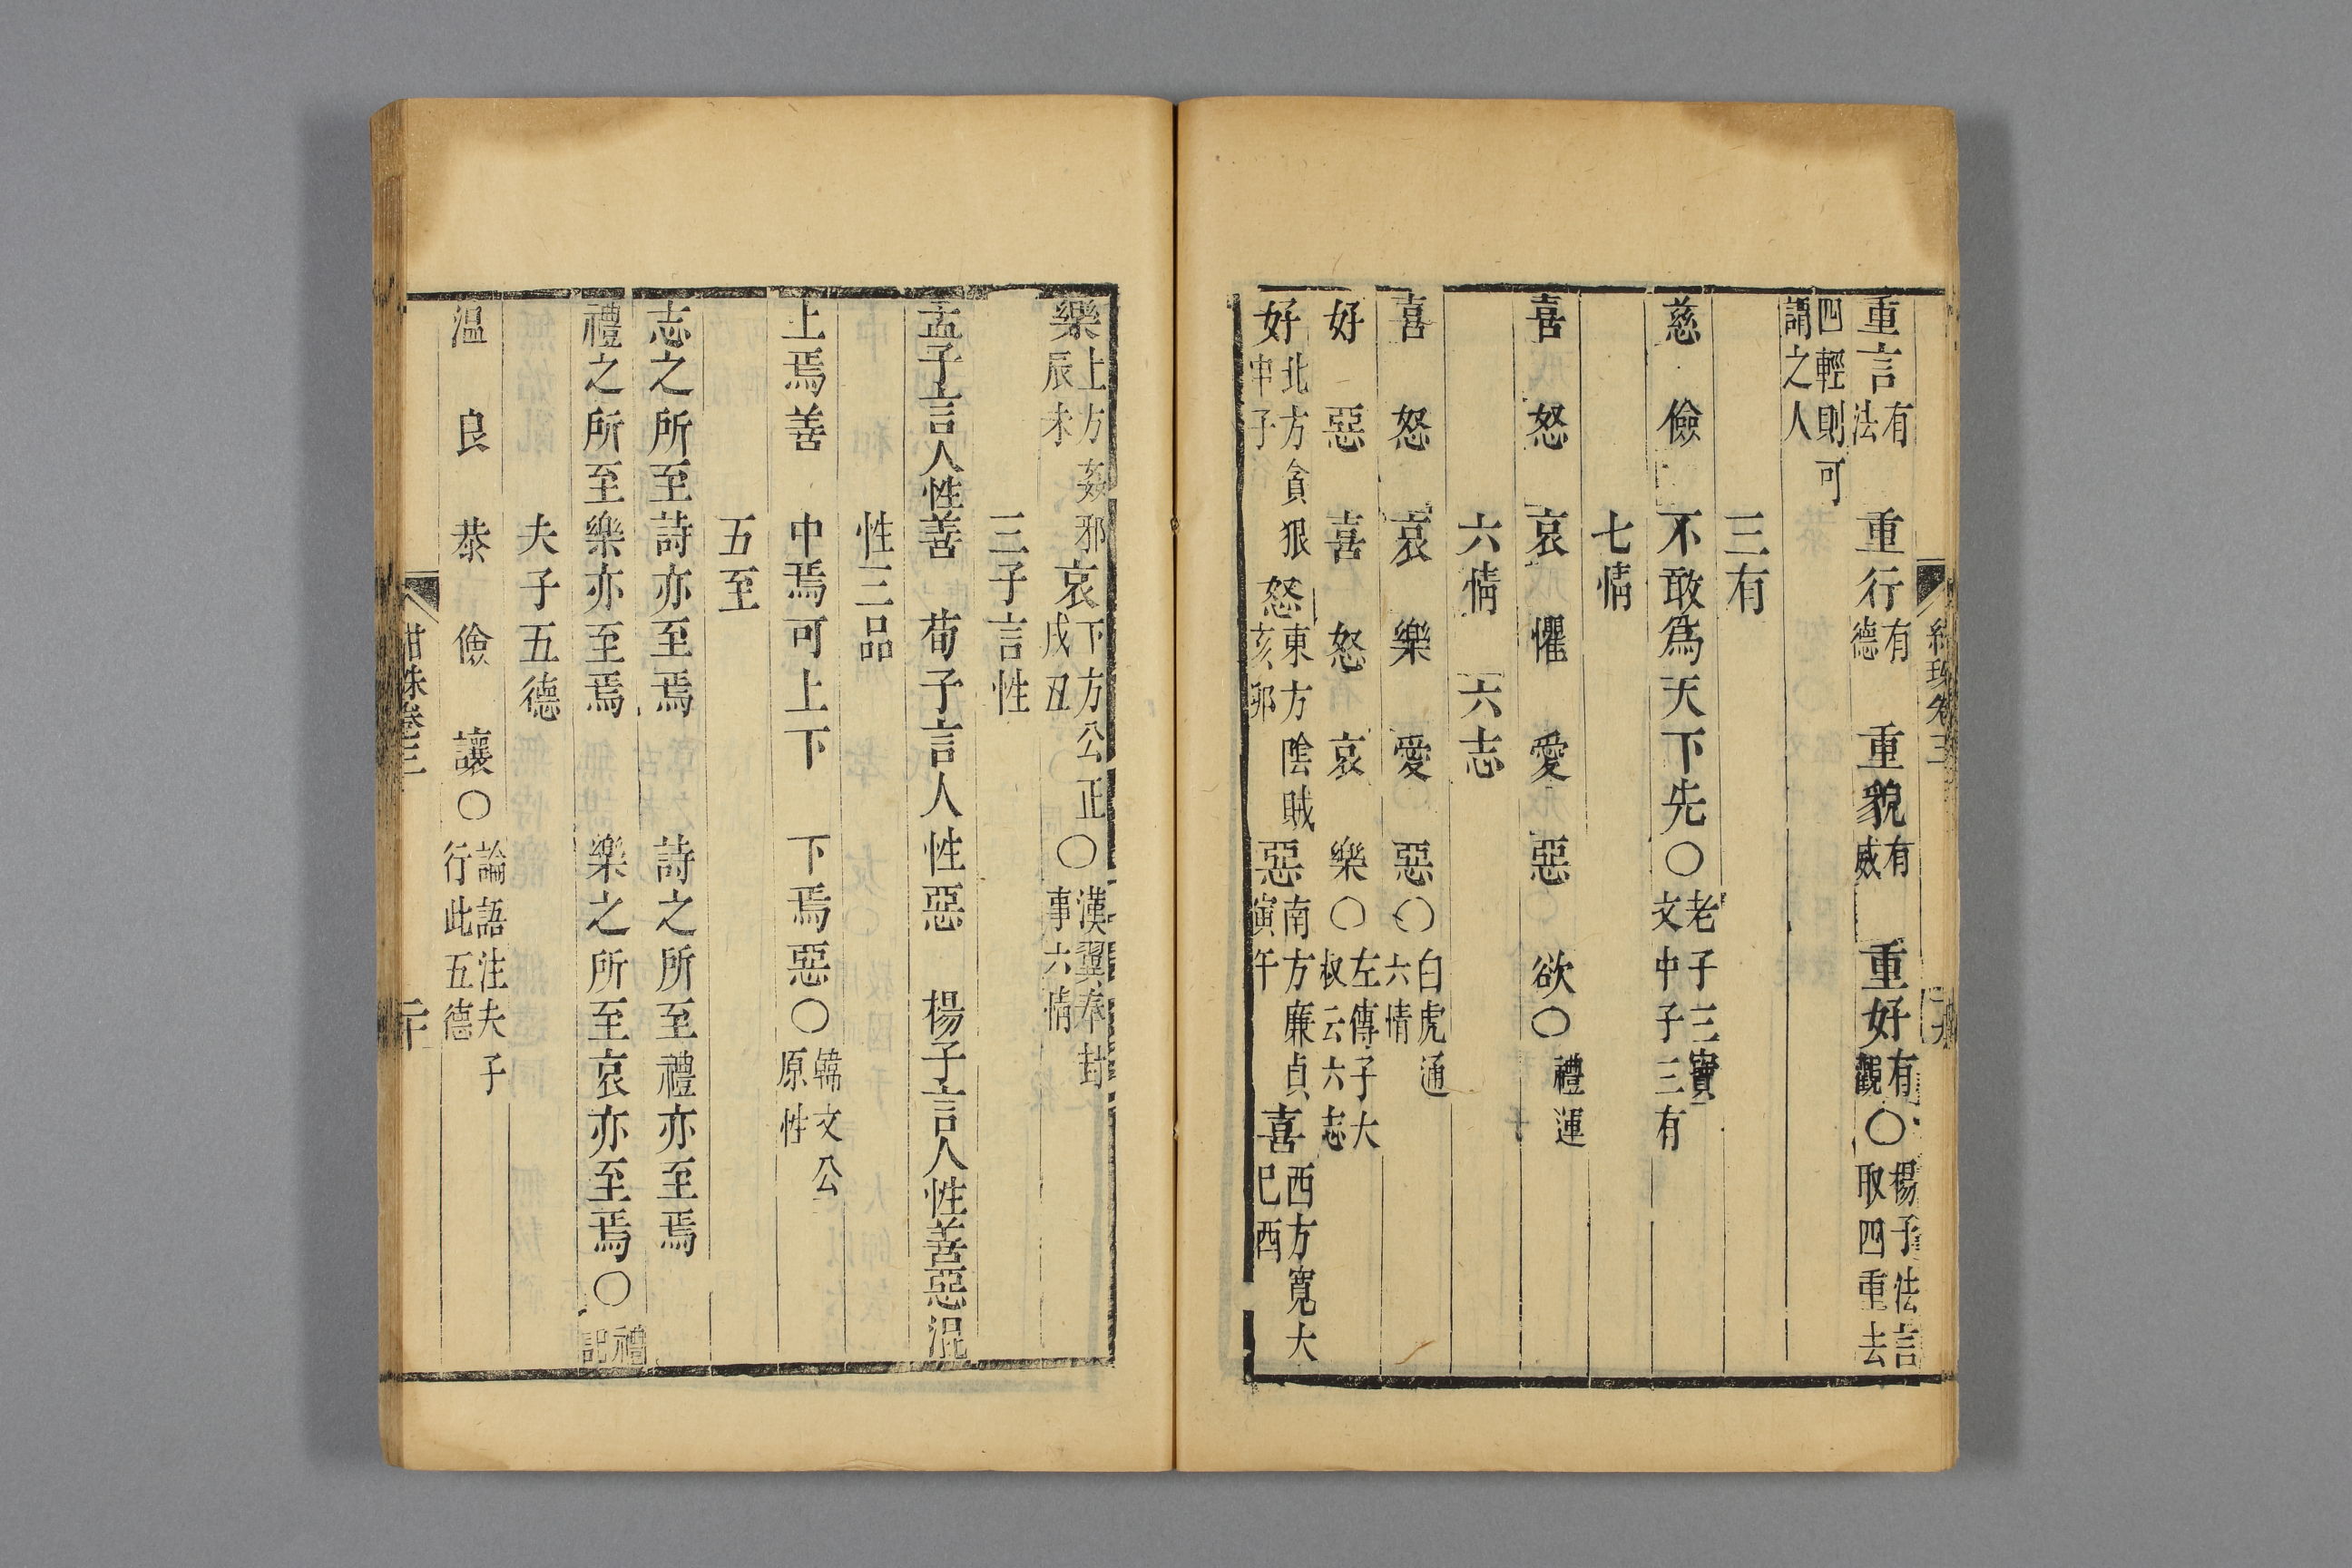 重言有法　重行有德　重貌有威　重好有觀〇楊子法言取四重去
四輕則可謂之人
三有
慈　儉　不敢爲天下先〇老子三寶文中子三有
七情
喜　怒　哀　懼　愛　惡　欲〇禮運
六情　六志
喜　怒　哀　樂　愛　惡〇白虎通六情
好　惡　喜　怒　哀　樂〇左傳子大叔云六志
好北方貪狠申子　怒東方陰賊亥卯　惡南方廉貞寅午　喜西方寬大巳酉
樂上方姦邪辰未　哀下方公正戌丑〇漢翼奉封事六情
三子言性
孟子言人性善　荀子言人性惡　楊子言人性善惡混
性三品
上焉善　中焉可上下　下焉惡〇韓文公原性
五至
志之所至詩亦至焉　詩之所至禮亦至焉
禮之所至樂亦至焉　樂之所至哀亦至焉〇禮記
夫子五德
溫　良　恭　儉　讓〇論語注夫子行此五德
紺珠卷三